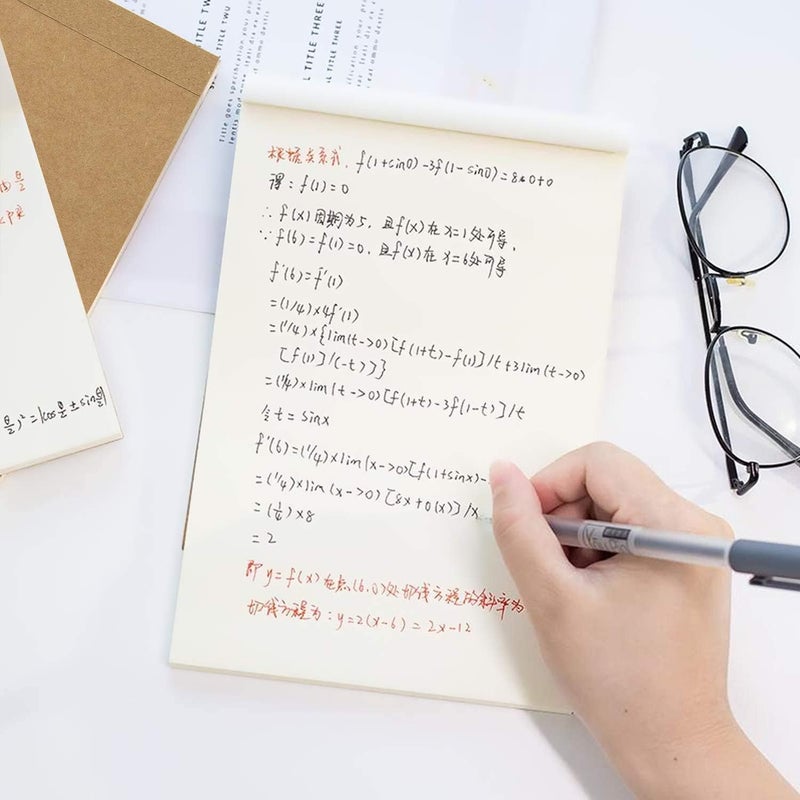 TITLE TWO
TITLE TWO
Title goes
L TITLE THREE
AL TITLE THREE
根据关系式,f(1+sin0)-3f(1-sin0)=8&0+0
得:f(1)=0
∴ f(x)周期为5,且f(x)在x=1处可导,
∵ f(6)=f(1)=0,且f(x)在x=6处可导
f'(6)=f'(1)
=(1/4)×4f'(1)
=(1/4)×{lim(t->0)[f(1+t)-f(1)]/t+3lim(t->0)
[f(1)]/(-t)]}
=(1/4)×lim(t->0)[f(1+t)-3f(1-t)]/t
令t=sinx
f'(6)=(1/4)×lim(x->0)[f(1+sinx)-
=(1/4)×lim(x->0)[8x+0(x)]/x
=(1/4)×8
=2
即y=f(x)在点(6,0)处切线方程的斜率为
切线方程为:y=2(x-6)=2x-12